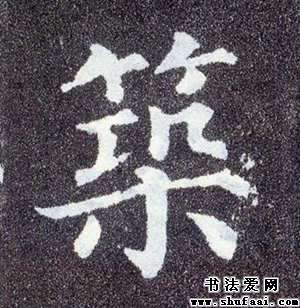 築
书法爱网
www.shufaai.com